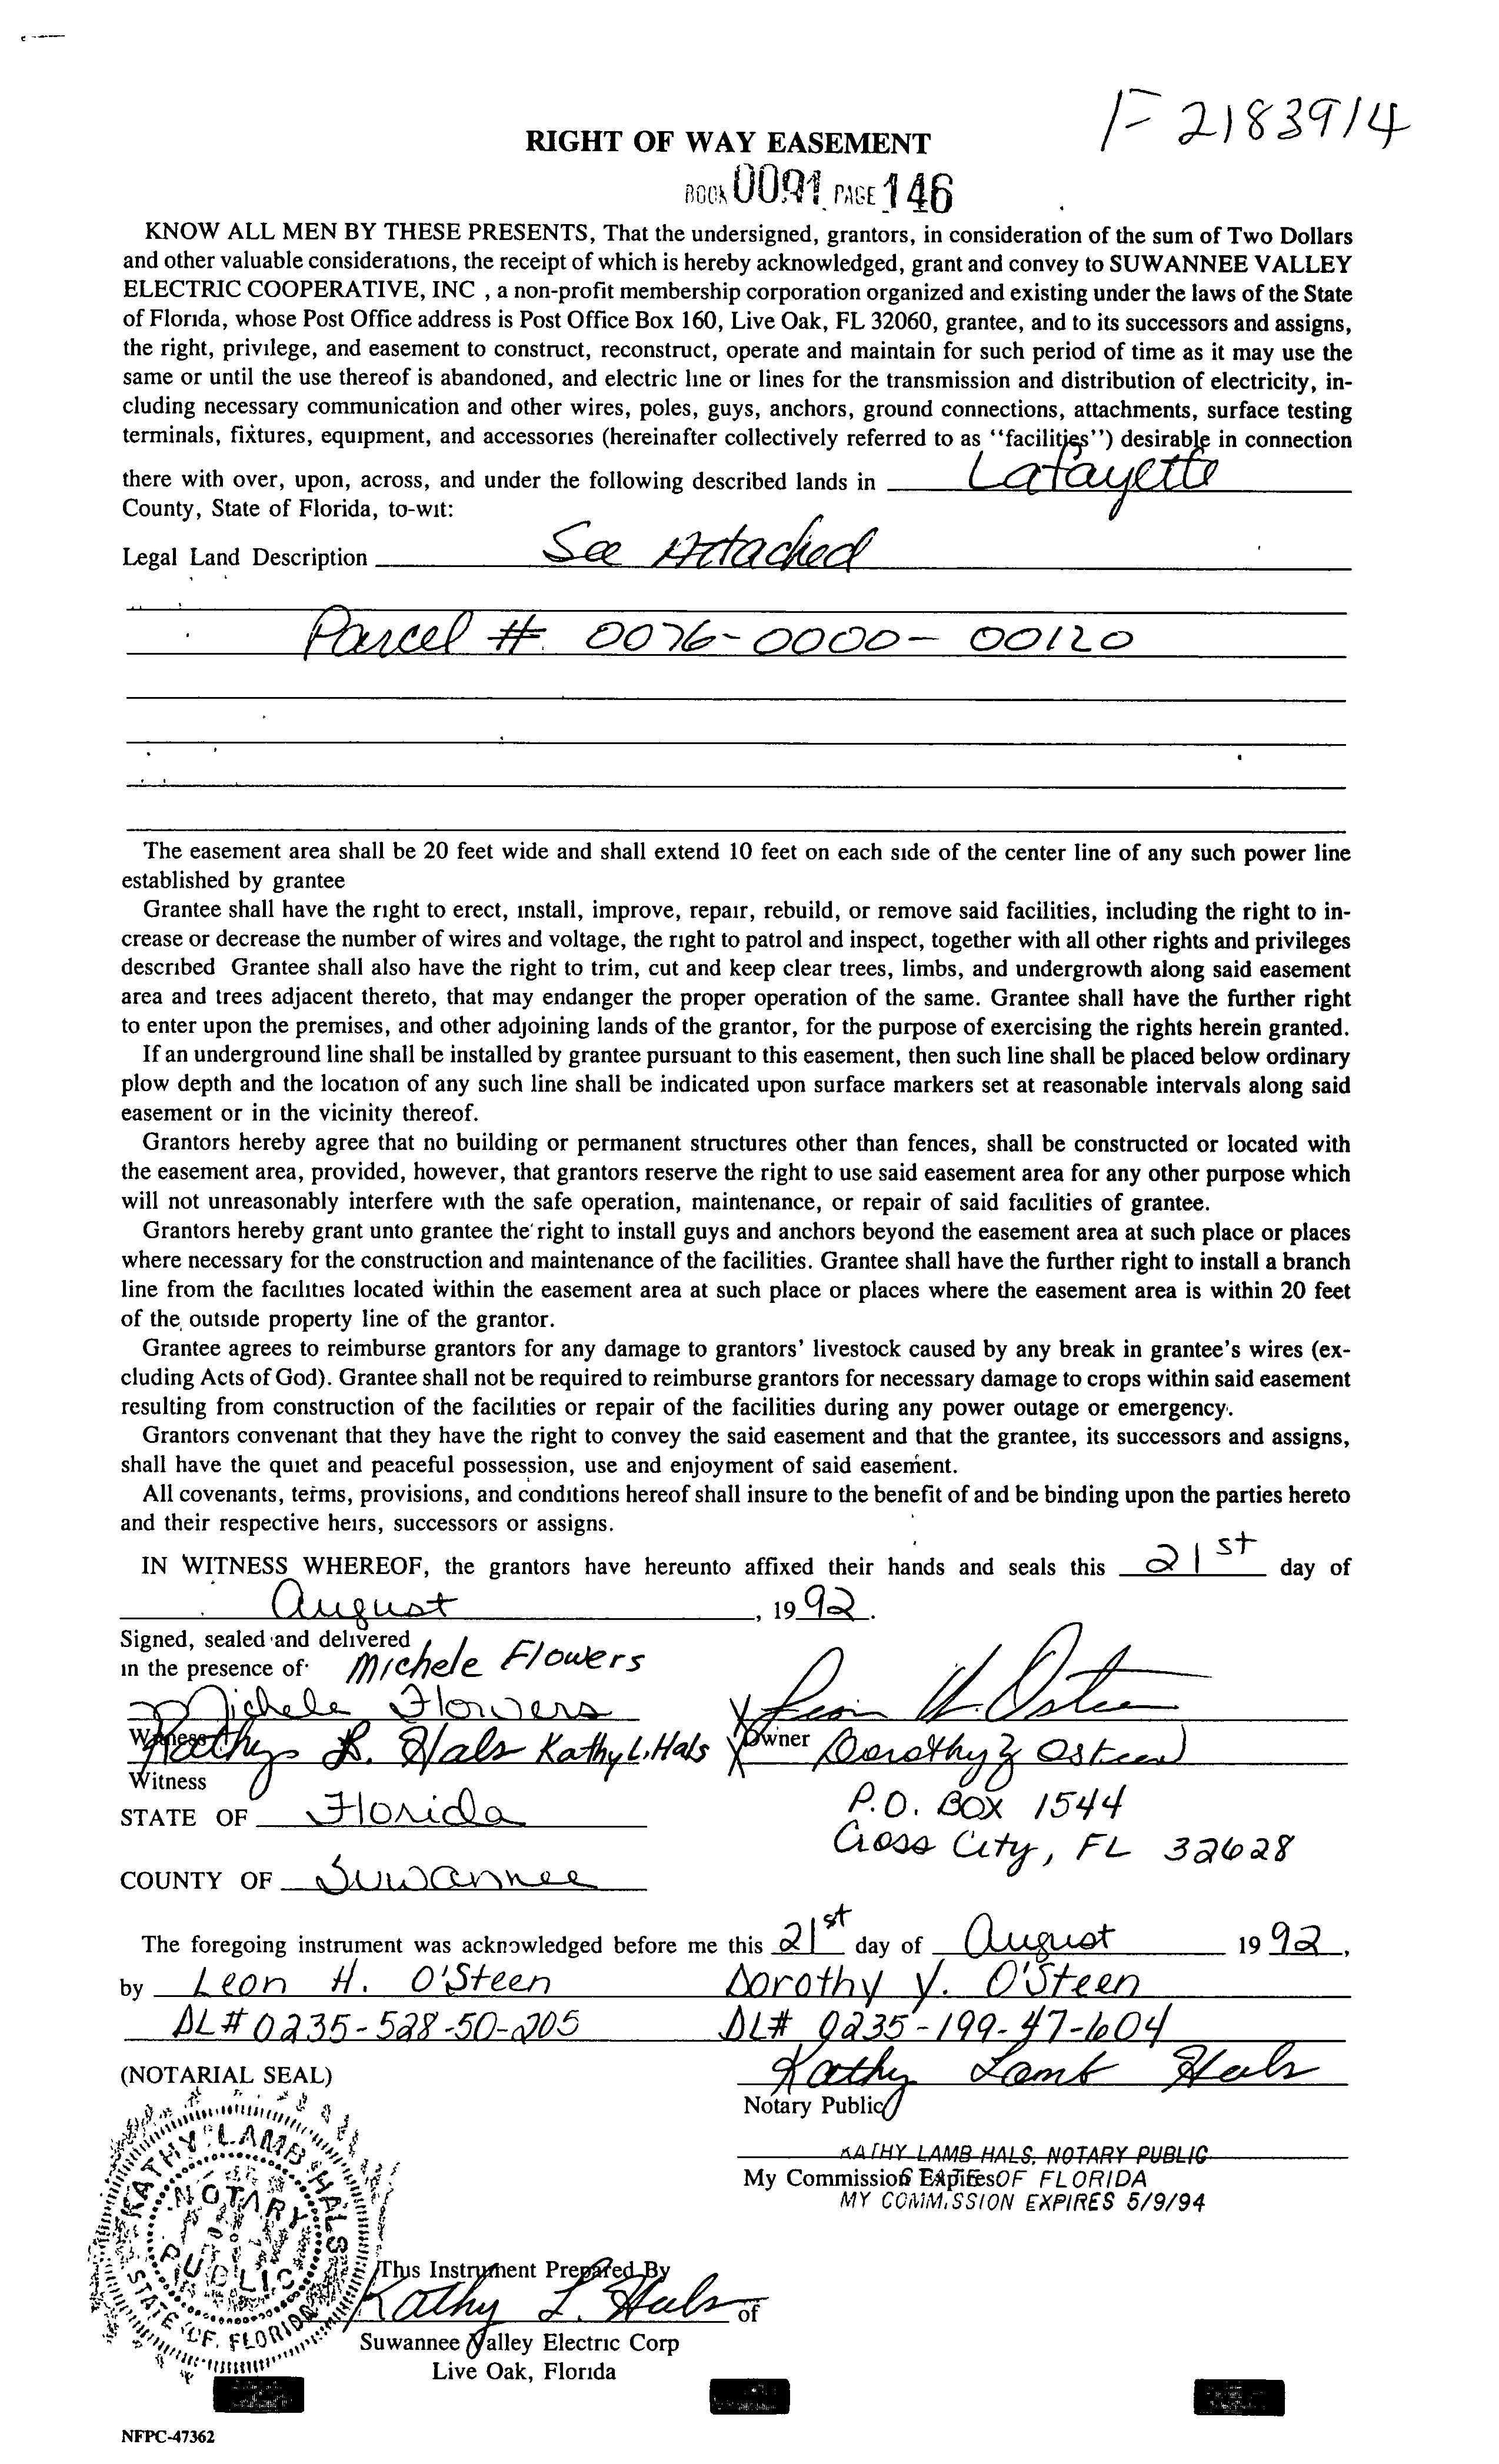 F 2183914
RIGHT OF WAY EASEMENT
BOOK 0091 PAGE 146
KNOW ALL MEN BY THESE PRESENTS, That the undersigned, grantors, in consideration of the sum of Two Dollars
and other valuable considerations, the receipt of which is hereby acknowledged, grant and convey to SUWANNEE VALLEY
ELECTRIC COOPERATIVE, INC , a non-profit membership corporation organized and existing under the laws of the State
of Florida, whose Post Office address is Post Office Box 160, Live Oak, FL 32060, grantee, and to its successors and assigns,
the right, privilege, and easement to construct, reconstruct, operate and maintain for such period of time as it may use the
same or until the use thereof is abandoned, and electric line or lines for the transmission and distribution of electricity, in-
cluding necessary communication and other wires, poles, guys, anchors, ground connections, attachments, surface testing
terminals, fixtures, equipment, and accessories (hereinafter collectively referred to as "facilities") desirable in connection
there with over, upon, across, and under the following described lands in Lafayette
County, State of Florida, to-wit:
Legal Land Description See Attached
Parcel # 0076-0000-00120
The easement area shall be 20 feet wide and shall extend 10 feet on each side of the center line of any such power line
established by grantee
Grantee shall have the right to erect, install, improve, repair, rebuild, or remove said facilities, including the right to in-
crease or decrease the number of wires and voltage, the right to patrol and inspect, together with all other rights and privileges
described Grantee shall also have the right to trim, cut and keep clear trees, limbs, and undergrowth along said easement
area and trees adjacent thereto, that may endanger the proper operation of the same. Grantee shall have the further right
to enter upon the premises, and other adjoining lands of the grantor, for the purpose of exercising the rights herein granted.
If an underground line shall be installed by grantee pursuant to this easement, then such line shall be placed below ordinary
plow depth and the location of any such line shall be indicated upon surface markers set at reasonable intervals along said
easement or in the vicinity thereof.
Grantors hereby agree that no building or permanent structures other than fences, shall be constructed or located with
the easement area, provided, however, that grantors reserve the right to use said easement area for any other purpose which
will not unreasonably interfere with the safe operation, maintenance, or repair of said facilities of grantee.
Grantors hereby grant unto grantee the right to install guys and anchors beyond the easement area at such place or places
where necessary for the construction and maintenance of the facilities. Grantee shall have the further right to install a branch
line from the facilities located within the easement area at such place or places where the easement area is within 20 feet
of the outside property line of the grantor.
Grantee agrees to reimburse grantors for any damage to grantors' livestock caused by any break in grantee's wires (ex-
cluding Acts of God). Grantee shall not be required to reimburse grantors for necessary damage to crops within said easement
resulting from construction of the facilities or repair of the facilities during any power outage or emergency.
Grantors convenant that they have the right to convey the said easement and that the grantee, its successors and assigns,
shall have the quiet and peaceful possession, use and enjoyment of said easement.
All covenants, terms, provisions, and conditions hereof shall insure to the benefit of and be binding upon the parties hereto
and their respective heirs, successors or assigns.
IN WITNESS WHEREOF, the grantors have hereunto affixed their hands and seals this 21st day of
August, 1992.
Signed, sealed and delivered
in the presence of Michele Flowers
Michele Flowers X Leon H. Osteen
Witness Owner
Kathy L. Hals Kathy L. Hals X Dorothy Y Osteen
Witness
P.O. BOX 1544
STATE OF Florida
Cross City, FL 32628
COUNTY OF Suwannee
The foregoing instrument was acknowledged before me this 21st day of August 1992,
by Leon H. O'Steen Dorothy Y. O'Steen
DL# 0235-528-50-205 DL# 0235-199-47-604
(NOTARIAL SEAL) Kathy Lamb Hals
Notary Public
KATHY LAMB HALS, NOTARY PUBLIC
My Commission Expires
STATE OF FLORIDA
MY COMMISSION EXPIRES 5/9/94
KATHY LAMB HALS
NOTARY
PUBLIC
STATE OF FLORIDA
This Instrument Prepared By
Kathy L. Hals of
Suwannee Valley Electric Corp
Live Oak, Florida
NFPC-47362